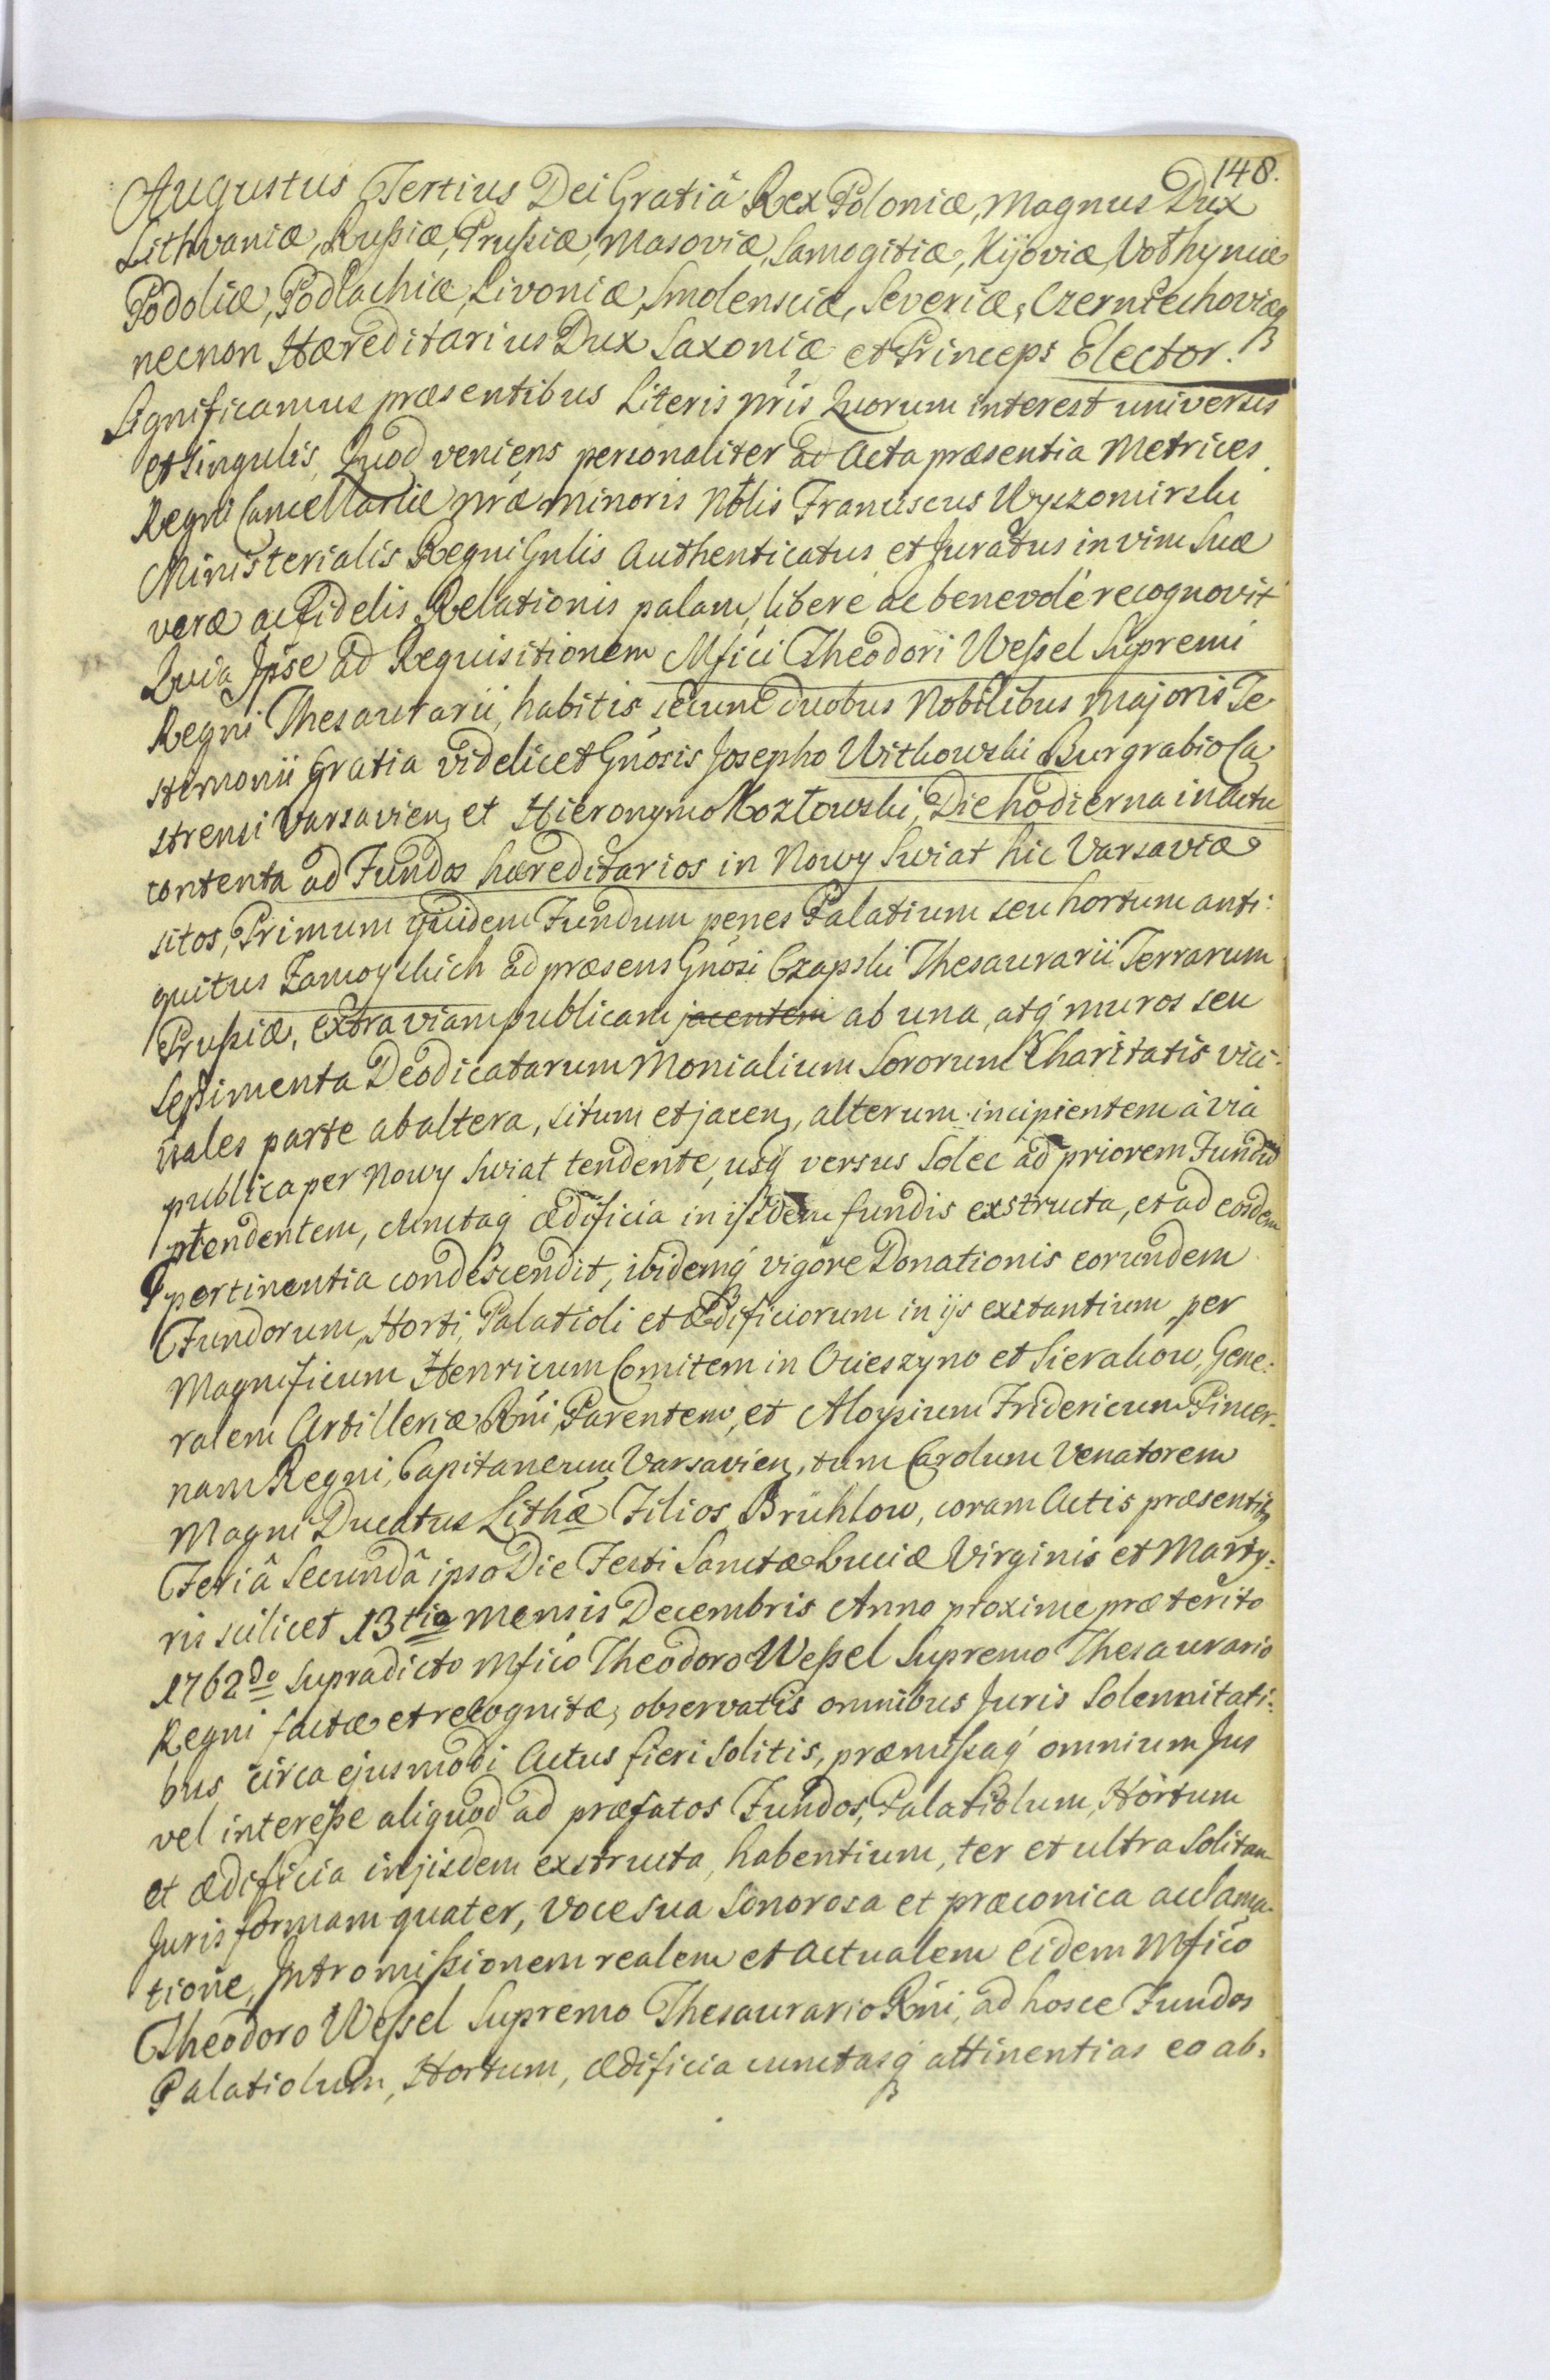 148.
Augustus Tertius Dei Gratiâ Rex Poloniæ, Magnus Dux
Lithvaniæ, Rußiæ, Prußiæ, Masoviæ, Samogitiæ, Kijoviæ, Volhyniæ
Podoliæ, Podlachiæ, Livoniæ, Smolensciæ, Severiæ, Czerniechoviæq
necnon Hæreditarius Dux Saxoniæ et Princeps Elector.
Significamus præsentibus Literis nr̃is Quorum interest universis
et singulis, Quod veniens personaliter ad Acta præsentia Metrices
Regni Cancellariæ nr̃æ minoris Nõlis Franciscus Wyszomirski
Ministerialis Regni Gnlis Authenticatus et Juratus in vim Suæ
veræ ac fidelis Relationis palam, liberè ac benevolè recognovit
Quia Ipse ad Requisitionem Mfici Theodori Weßel Supremi
Regni Thesaurarii, habitis secum duobus Nobilibus majoris Te-
stimonii gratia videlicet Gnosis Josepho Witkowski Burgrabio Ca-
strensi Varsavien, et Hieronymo Kozłowski, Die hodierna in Actu
contenta ad Fundos hæreditarios in Nowy Swiat hic Varsaviæ
sitos, Primum quidem Fundum penes Palatium seu hortum anti:
quitus Zamoyskich ad præsens Gnosi Czapski Thesaurarii Terrarum
Prußiæ, extra viam publicam jacentem ab una, atq muros seu
Sepimenta Deodicatarum Monialium Sororum Charitatis vici:
nales parte ab altera, situm et jacen, alterum incipientem à via
publica per Nowy Swiat tendente, usq versus Solec ad priorem Fundũ
ptendentem, cunctaq ædificia in ijsdem fundis exstructa, et ad eosdem
pertinentia condescendit, ibidemq vigore Donationis eorundem
Fundorum, Horti, Palatioli et Ædificiorum in ijs exstantium, per
Magnificum Henricum Comitem in Ocieszyno et Sierakow, Gene:
ralem Artilleriæ Rni, Parentem, et Aloysium Fridericum Pincer-
nam Regni, Capitaneum Varsavien, tum Carolum Venatorem
Magni Ducatus Lithæ Filios Brühlow, coram Actis præsentib
Feriâ Secundâ ipso Die Festi Sanctæ Luciæ Virginis et Marty:
ris scilicet 13tia Mensis Decembris Anno proxime præterito
1762do Supradicto Mfico Theodoro Weßel Supremo Thesaurario
Regni factæ et recognitæ, observatis omnibus Juris Solennitati:
bus circa ejusmodi Actus fieri solitis, præmißaq omnium Jus
vel intereße aliquod ad præfatos Fundos, Palatiolum, Hortum
et ædificia in ijsdem exstructa, habentium, ter et ultra Solitam
Juris formam quater, voce sua Sonorosa et præconica acclama-
tione, Intromißionem realem et Actualem eidem Mfico
Theodoro Weßel Supremo Thesaurario Rni, ad hosce Fundos
Palatiolum, Hortum, ædificia cunctasq attinentias eo ab.